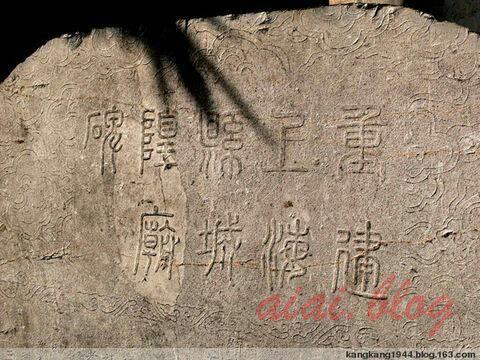 重建
上海
縣城
隍廟
碑
aiai.blog
kangkang1944.blog.163.com